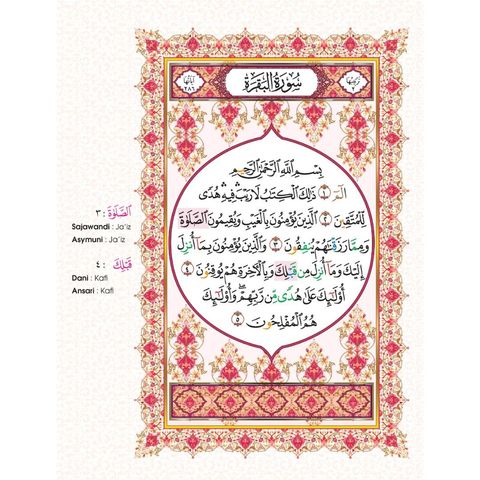 ترتيبها ٢
سُورَةُ البَقَرَة
آياتها ٢٨٦
بِسْمِ اللَّهِ الرَّحْمَٰنِ الرَّحِيمِ
الٓمٓ ١ ذَٰلِكَ الْكِتَٰبُ لَا رَيْبَ ۛ فِيهِ ۛ هُدًى
لِّلْمُتَّقِينَ ٢ الَّذِينَ يُؤْمِنُونَ بِالْغَيْبِ وَيُقِيمُونَ الصَّلَوٰةَ
وَمِمَّا رَزَقْنَٰهُمْ يُنفِقُونَ ٣ وَالَّذِينَ يُؤْمِنُونَ بِمَآ أُنزِلَ
إِلَيْكَ وَمَآ أُنزِلَ مِن قَبْلِكَ وَبِالْءَاخِرَةِ هُمْ يُوقِنُونَ ٤
أُو۟لَٰٓئِكَ عَلَىٰ هُدًى مِّن رَّبِّهِمْ ۖ وَأُو۟لَٰٓئِكَ
هُمُ الْمُفْلِحُونَ ٥
الصَّلَوٰةَ : ٣
Sajawandi : Ja'iz
Asymuni : Ja'iz
قَبْلِكَ : ٤
Dani : Kafi
Ansari : Kafi